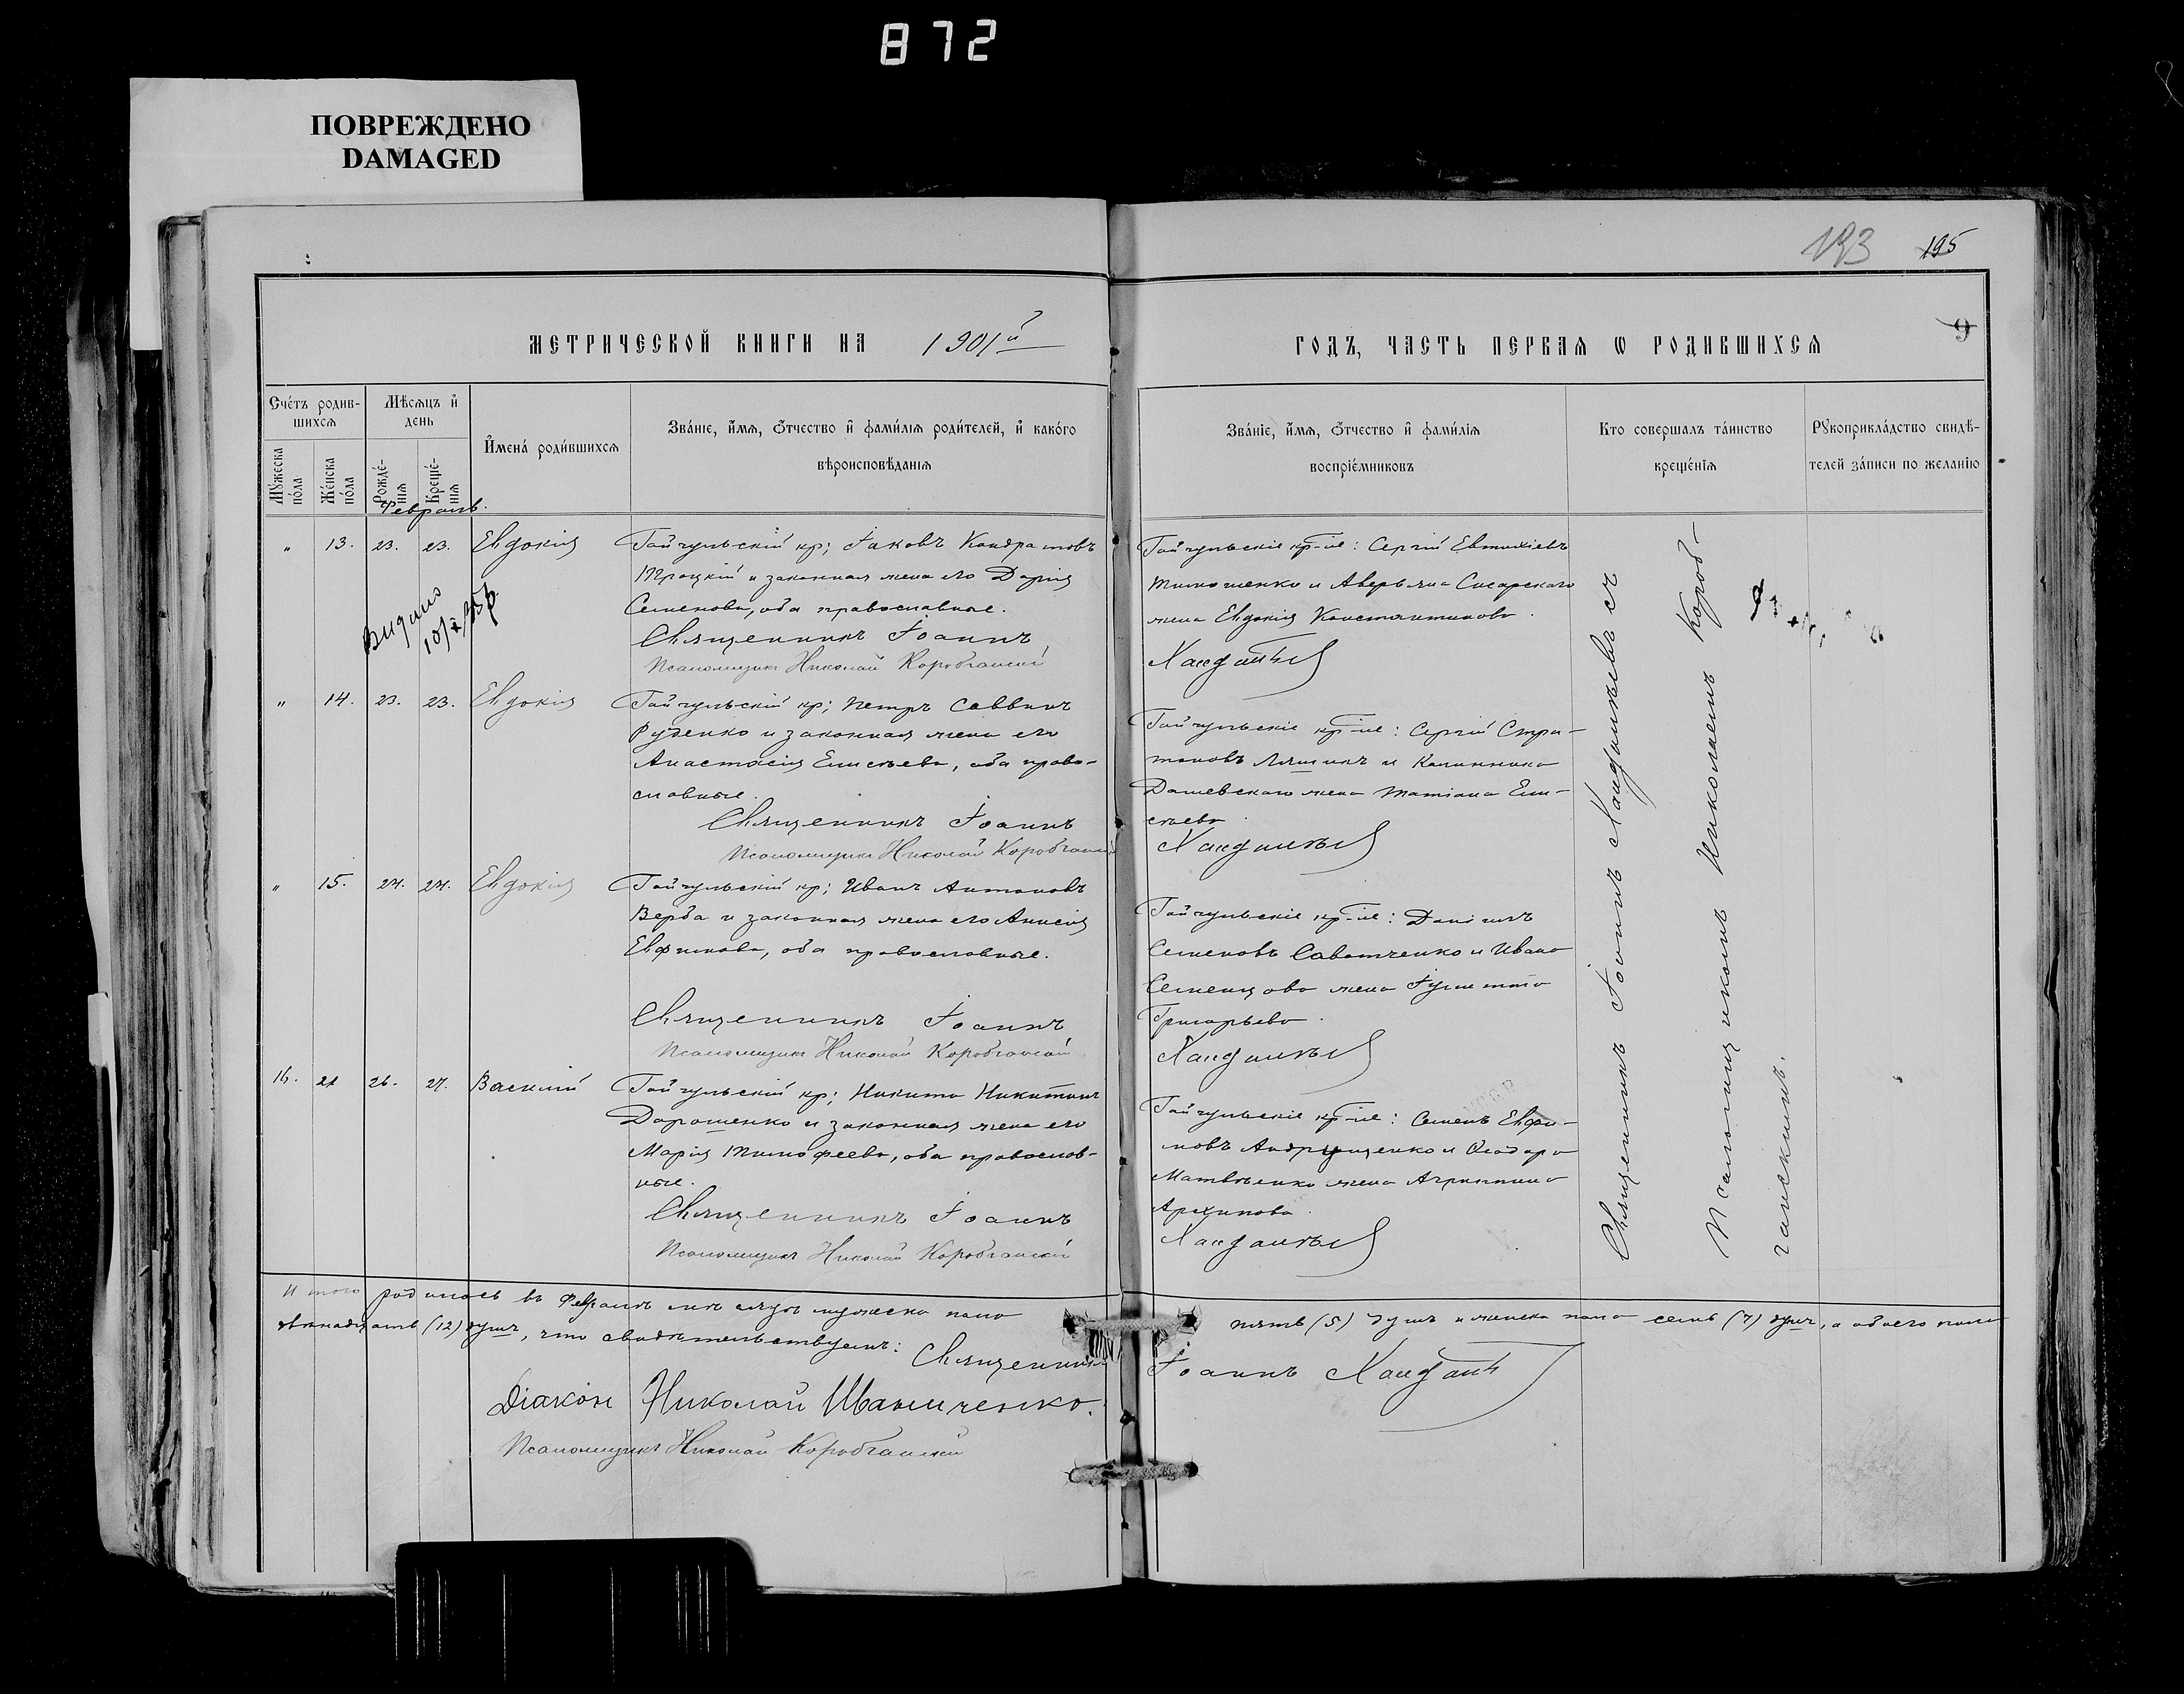 872
ПОВРЕЖДЕНО
DAMAGED
193 195
9
МЕТРИЧЕСКОЙ КНИГИ НА 1901й
ГОДЪ, ЧАСТЬ ПЕРВАЯ Ѡ РОДИВШИХСЯ
Счетъ родив-
шихся
Мѣсяцъ и
день
Мужеска
пола
Женска
пола
Рожде-
нія
Креще-
нія
Имена родившихся
Званіе, имя, отчество и фамилія родителей, и какого
вѣроисповѣданія
Званіе, имя, отчество и фамилія
воспріемниковъ
Кто совершалъ таинство
крещенія
Рукоприкладство свидѣ-
телей записи по желанію
Февраль.
" 13. 23. 23. Евдокія
Гайчульскій кр; Іаковъ Кондратовъ
Троцкій и законная жена его Дарія
Семенова, оба православные.
Священникъ Іоаннъ
Псаломщикъ Николай Коробчанскій
Гайчульскіе кр-не: Сергій Евтихіевъ
Тимошенко и Аверьяна Сисарскаго
жена Евдокія Константинова.
Хандалѣев
Видано
" 14. 23. 23. Евдокія
Гайчульскій кр; Петръ Саввинъ
Руденко и законная жена его
Анастасія Елисѣева, оба право-
славные.
Священникъ Іоаннъ
Псаломщикъ Николай Коробчанскій
Гайчульскіе кр-не: Сергій Стра-
тоновъ Ляшикъ и Калинника
Дашевскаго жена Татіана Ели-
сѣева.
" 15. 24. 24. Евдокія
Гайчульскій кр; Иванъ Антоновъ
Верба и законная жена его Анисія
Евфимова, оба православные.
Священникъ Іоаннъ
Псаломщикъ Николай Коробчанскій
Гайчульскіе кр-не: Даніилъ
Семеновъ Саватченко и Ивана
Семенцова жена Іулитта
Григорьева.
16. 26. 27. Василій
Гайчульскій кр; Никита Никитинъ
Дорошенко и законная жена его
Марія Тимофеева, оба православ-
ные.
Священникъ Іоаннъ
Псаломщикъ Николай Коробчанскій
Гайчульскіе кр-не: Семенъ Евфи-
мовъ Андрущенко и Ѳеодора
Матвѣенко жена Агриппина
Архипова.
Священникъ Іоаннъ съ
Псаломщикомъ Николаемъ Короб-
чанскимъ.
Итого родилось въ Февралѣ мѣсяцѣ мужеска пола пять (5) душъ и женска пола семь (7) душъ, а обоего пола
двѣнадцать (12) душъ, что свидѣтельствуемъ: Священникъ Іоаннъ
Діаконъ Николай Иванченко.
Псаломщикъ Николай Коробчанскій